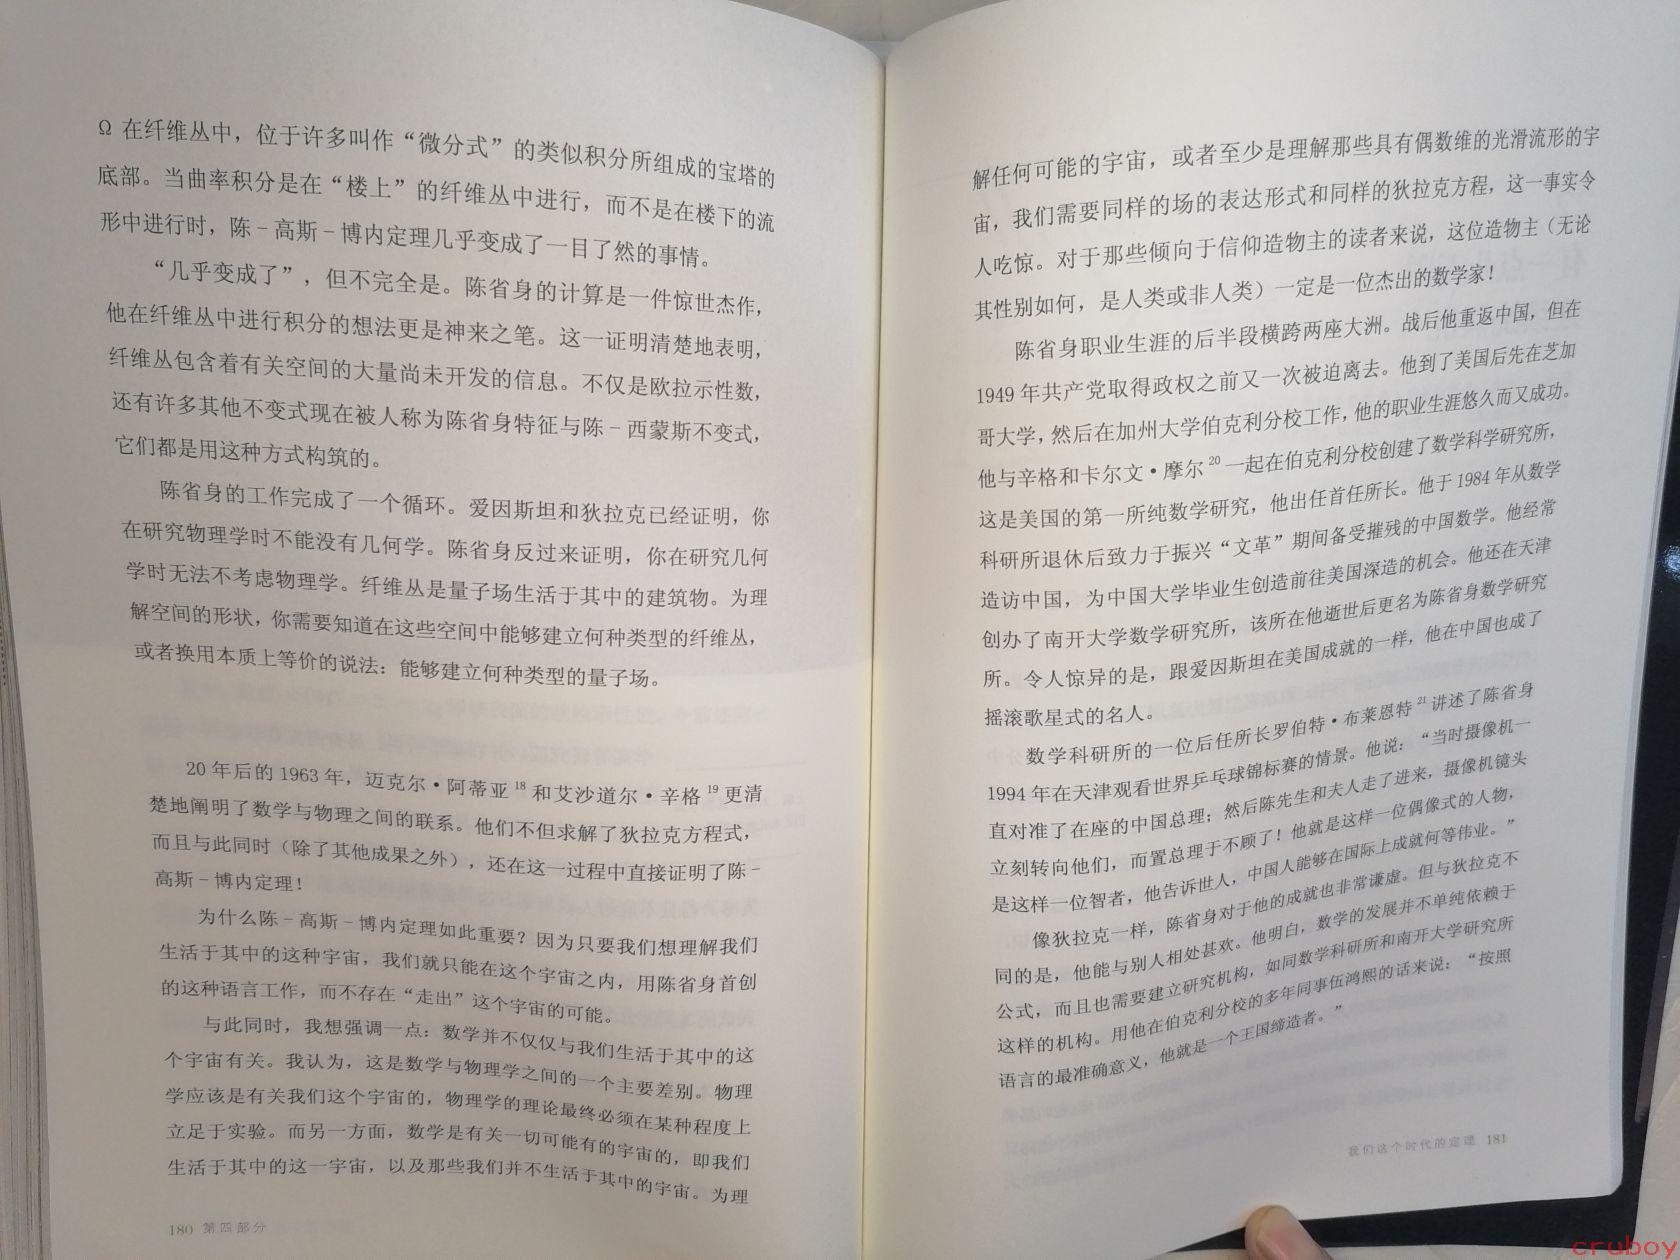 Ω 在纤维丛中，位于许多叫作“微分式”的类似积分所组成的宝塔的
底部。当曲率积分是在“楼上”的纤维丛中进行，而不是在楼下的流
形中进行时，陈－高斯－博内定理几乎变成了一目了然的事情。
“几乎变成了”，但不完全是。陈省身的计算是一件惊世杰作，
他在纤维丛中进行积分的想法更是神来之笔。这一证明清楚地表明，
纤维丛包含着有关空间的大量尚未开发的信息。不仅是欧拉示性数，
还有许多其他不变式现在被人称为陈省身特征与陈－西蒙斯不变式，
它们都是用这种方式构筑的。
陈省身的工作完成了一个循环。爱因斯坦和狄拉克已经证明，你
在研究物理学时不能没有几何学。陈省身反过来证明，你在研究几何
学时无法不考虑物理学。纤维丛是量子场生活于其中的建筑物。为理
解空间的形状，你需要知道在这些空间中能够建立何种类型的纤维丛，
或者换用本质上等价的说法：能够建立何种类型的量子场。
20 年后的 1963 年，迈克尔·阿蒂亚18 和艾沙道尔·辛格19 更清
楚地阐明了数学与物理之间的联系。他们不但求解了狄拉克方程式，
而且与此同时（除了其他成果之外），还在这一过程中直接证明了陈－
高斯－博内定理！
为什么陈－高斯－博内定理如此重要？因为只要我们想理解我们
生活于其中的这种宇宙，我们就只能在这个宇宙之内，用陈省身首创
的这种语言工作，而不存在“走出”这个宇宙的可能。
与此同时，我想强调一点：数学并不仅仅与我们生活于其中的这
个宇宙有关。我认为，这是数学与物理学之间的一个主要差别。物理
学应该是有关我们这个宇宙的，物理学的理论最终必须在某种程度上
立足于实验。而另一方面，数学是有关一切可能有的宇宙的，即我们
生活于其中的这一宇宙，以及那些我们并不生活于其中的宇宙。为理
180 第四部分
解任何可能的宇宙，或者至少是理解那些具有偶数维的光滑流形的宇
宙，我们需要同样的场的表达形式和同样的狄拉克方程，这一事实令
人吃惊。对于那些倾向于信仰造物主的读者来说，这位造物主（无论
其性别如何，是人类或非人类）一定是一位杰出的数学家！
陈省身职业生涯的后半段横跨两座大洲。战后他重返中国，但在
1949 年共产党取得政权之前又一次被迫离去。他到了美国后先在芝加
哥大学，然后在加州大学伯克利分校工作，他的职业生涯悠久而又成功。
他与辛格和卡尔文·摩尔20 一起在伯克利分校创建了数学科学研究所，
这是美国的第一所纯数学研究，他出任首任所长。他于 1984 年从数学
科研所退休后致力于振兴“文革”期间备受摧残的中国数学。他经常
造访中国，为中国大学毕业生创造前往美国深造的机会。他还在天津
创办了南开大学数学研究所，该所在他逝世后更名为陈省身数学研究
所。令人惊异的是，跟爱因斯坦在美国成就的一样，他在中国也成了
摇滚歌星式的名人。
数学科研所的一位后任所长罗伯特·布莱恩特21 讲述了陈省身
1994 年在天津观看世界乒乓球锦标赛的情景。他说：“当时摄像机一
直对准了在座的中国总理；然后陈先生和夫人走了进来，摄像机镜头
立刻转向他们，而置总理于不顾了！他就是这样一位偶像式的人物，
是这样一位智者，他告诉世人，中国人能够在国际上成就何等伟业。”
像狄拉克一样，陈省身对于他的成就也非常谦虚。但与狄拉克不
同的是，他能与别人相处甚欢。他明白，数学的发展并不单纯依赖于
公式，而且也需要建立研究机构，如同数学科研所和南开大学研究所
这样的机构。用他在伯克利分校的多年同事伍鸿熙的话来说：“按照
语言的最准确意义，他就是一个王国缔造者。”
我们这个时代的定理 181
cruboy